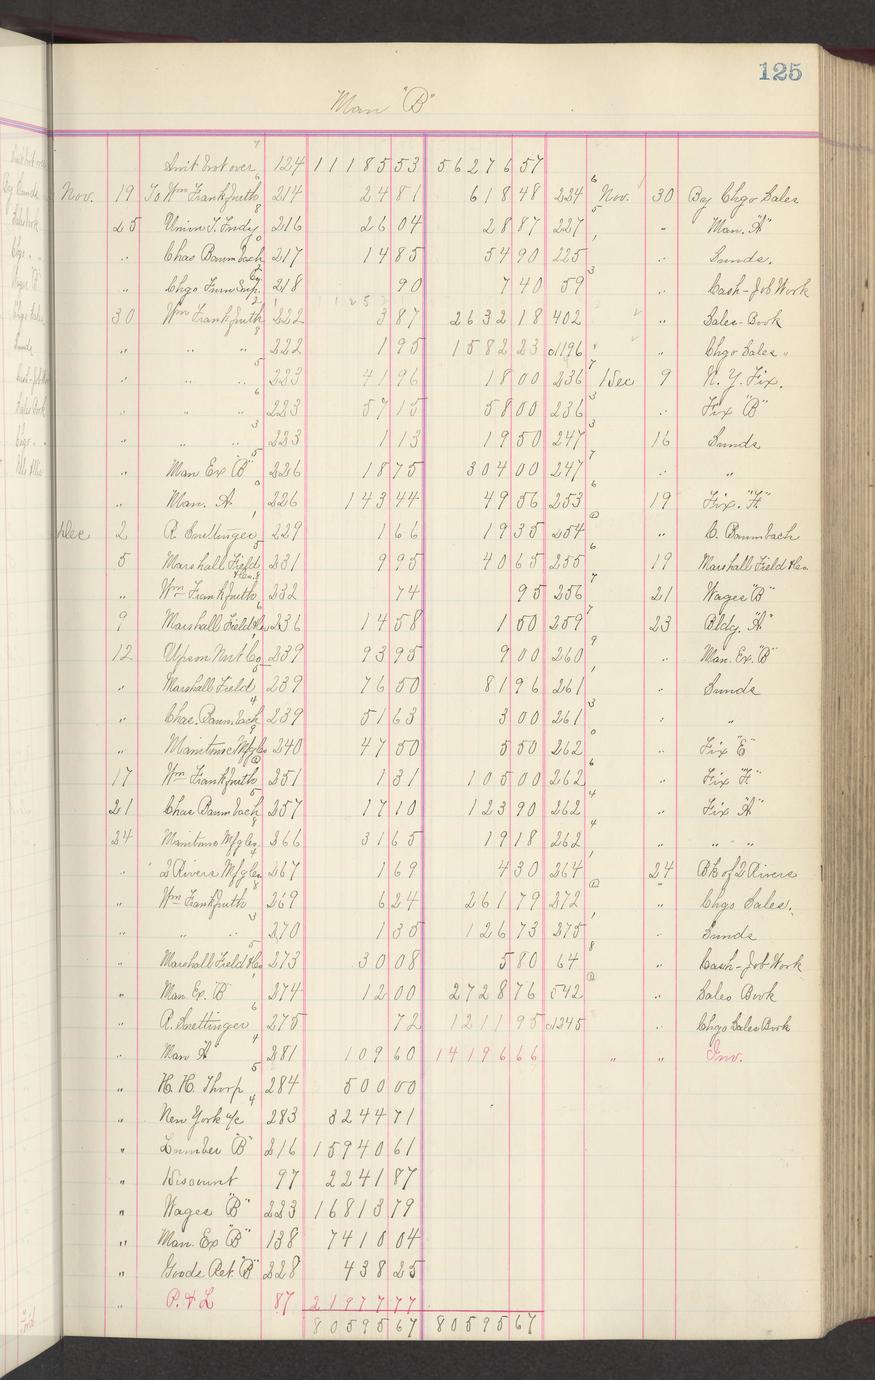 125
Man "B"
Amt brot over 124 11185 53 56276 57
Nov. 19 To Wm Frankfurth 214 24 81 618 48 224 Nov. 30 By Chgo Sales
25 Union T. Indy 216 26 04 28 87 227 " Man. "A"
" Chas Baumbach 217 14 85 54 90 225 " Sunds.
" Chgo Furn Sup. Co. 218 90 7 40 59 " Cash-Job Work
30 Wm Frankfurth 222 3 87 2632 18 402 " Sales-Book
" " " 222 1 95 1582 23 c1196 " Chgo Sales "
" " " 223 41 96 18 00 236 Dec 9 N. Y. Fix.
" " " 223 57 15 58 00 236 " Fix "B"
" " " 223 1 13 19 50 247 16 Sunds
" Man Ex "B" 226 18 75 304 00 247 " "
" Man. A 226 143 44 49 56 253 19 Fix. "F"
Dec 2 R. Suettinger 229 1 66 19 35 254 " C. Baumbach
5 Marshall Field & Co. 231 9 95 40 65 255 19 Marshall Field & Co
" Wm Frankfurth 232 74 95 256 21 Wages "B"
9 Marshall Field & Co 236 14 58 1 50 259 23 Bldg. "A"
12 Upson Nut Co 239 93 95 9 00 260 " Man. Ex. "B"
" Marshall Field 239 76 50 81 96 261 " Sunds
" Chas. Baumbach 239 51 63 3 00 261 " "
" Manitowoc Mfg Co 240 47 50 5 50 262 " Fix "E"
17 Wm Frankfurth 251 1 31 105 00 262 " Fix "F"
21 Chas Baumbach 257 17 10 123 90 262 " Fix "A"
24 Manitowoc Mfg Co. 266 31 65 19 18 262 " " "
" 2 Rivers Mfg Co 267 1 69 4 30 264 24 Bk of 2 Rivers
" Wm Frankfurth 269 6 24 261 79 272 " Chgo Sales.
" " " 270 1 35 126 73 275 " Sunds
" Marshall Field & Co 273 30 08 5 80 64 " Cash-Job Work
" Man. Ex. "B" 274 12 00 2728 76 c542 " Sales Book
" R. Suettinger 275 72 1211 95 c1245 " Chgo Sales Book
" Man "A" 281 109 60 14196 66 " " Inv.
" H. H. Thorp 284 500 00
" New York a/c 283 3244 71
" Lumber "B" 216 15940 61
" Discount 97 2241 87
" Wages "B" 223 16813 79
" Man. Ex "B" 138 7410 04
" Goods Ret. "B" 228 438 25
" P. & L 87 21977 77
80595 67 80595 67